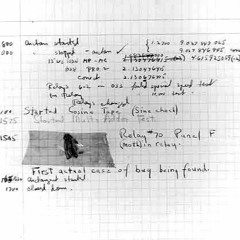 800 Antan started
000 " stopped - antan ✓ { 1.2700 9.037 847 025
9.037 846 995
13" uc (032) MP - MC
033 PRO 2 2.130476415
correct 2.130676415
Relays 6-2 in 033 failed special speed test
in relay
Relays changed
Started Cosine Tape (Sine check)
1525 Started Mult+Adder Test.
1545 Relay #70 Panel F
(moth) in relay.
First actual case of bug being found.
antangent started.
1700 closed down.